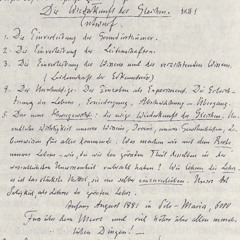 Die Wiederkunft des Gleichen.
Entwurf.
1. Die Einverleibung der Grundirrthümer.
2. Die Einverleibung der Leidenschaften.
3. Die Einverleibung des Wissens und des verzichtenden Wissens.
(Leidenschaft der Erkenntniss)
4. Der Unschuldige. Der Einzelne als Experiment. Die Erleich-
terung des Lebens, Erniedrigung, Abschwächung – Übergang.
5. Das neue Schwergewicht: die ewige Wiederkunft des Gleichen. Un-
endliche Wichtigkeit unseres Wissen's, Irren's, unsrer Gewohnheiten, Le-
bensweisen für alles Kommende. Was machen wir mit dem Reste
unseres Lebens – wir, die wir den grössten Theil desselben in der
wesentlichsten Unwissenheit verbracht haben? Wir lehren die Lehre
– es ist das stärkste Mittel, sie uns selber einzuverleiben. Unsre Art
Seligkeit, als Lehrer der grössten Lehre.
Anfang August 1881 in Sils-Maria, 6000
Fuss über dem Meere und viel höher über allen mensch-
lichen Dingen! –